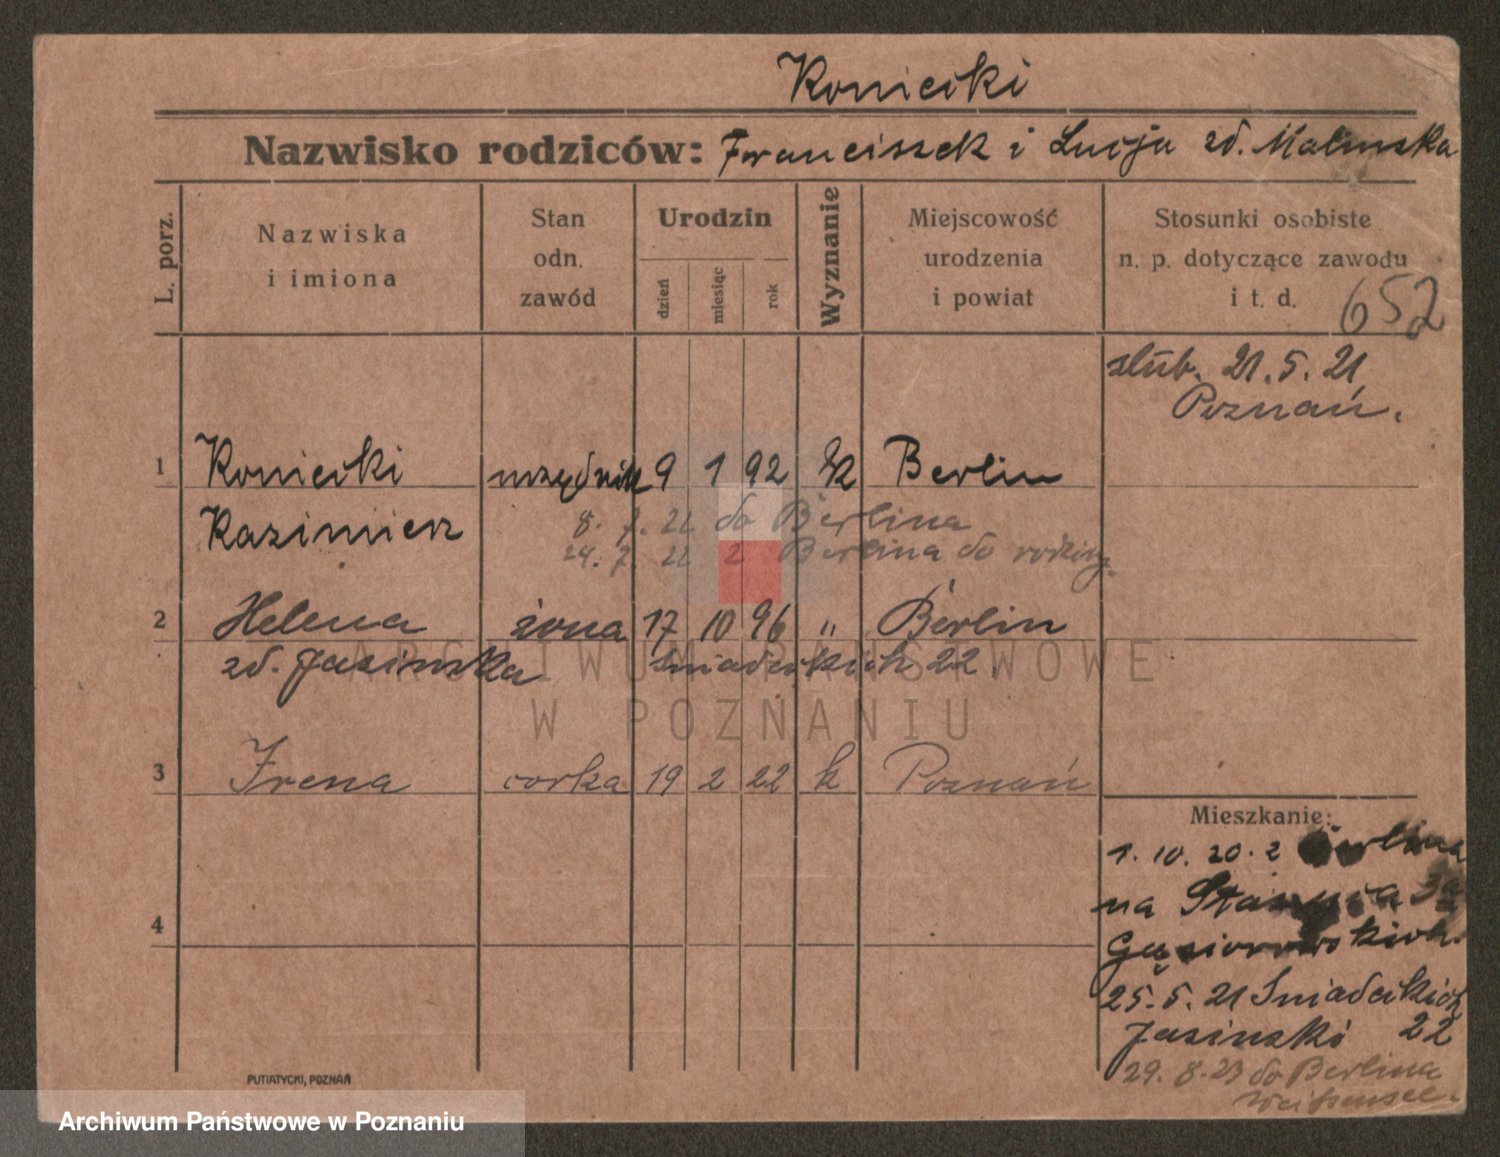 Koniecki
Nazwisko rodziców: Franciszek i Lucja zd. Malinska
L. porz.
Nazwiska
i imiona
Stan
odn.
zawód
Urodzin
dzień
miesiąc
rok
Wyznanie
Miejscowość
urodzenia
i powiat
Stosunki osobiste
n. p. dotyczące zawodu
i t. d.
652
slub. 21.5.21
Poznań.
1 Koniecki urzędnik 9 1 92 rk Berlin
Kazimierz
8. 7. 22 do Berlina
24. 7. 22 z Berlina do rodziny.
2 Helena żona 17 10 96 " Berlin
zd. Jasinska Sniadeckich 22.
3 Irena corka 19 2 22 k Poznań
4
Mieszkanie:
1. 10. 20 z Berlina
na
Gąsiorowskich.
25.5.21 Sniadeckich
Jasinski 22
29. 8. 23 do Berlina
Weissensee.
PUTIATYCKI, POZNAŃ
ARCHIWUM PAŃSTWOWE
W POZNANIU
Archiwum Państwowe w Poznaniu